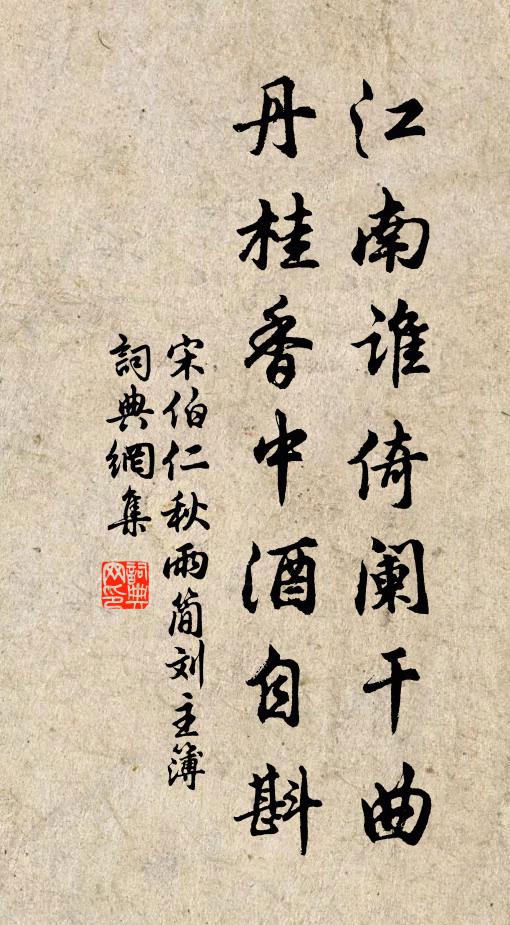 江南谁倚阑干曲
丹桂香中酒自斟
宋伯仁秋雨简刘主簿
詞典網集
詞典网印